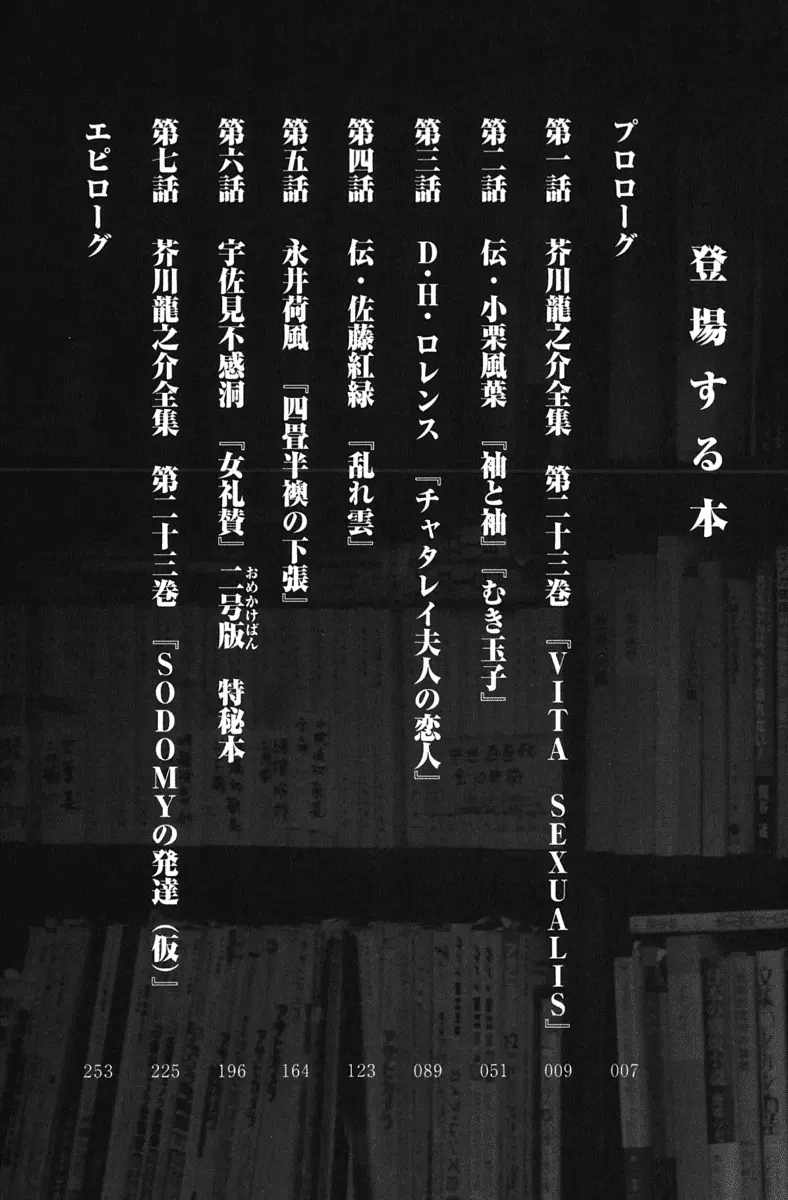 登場する本
プロローグ 007
第一話 芥川龍之介全集 第二十三巻 『VITA SEXUALIS』 009
第二話 伝・小栗風葉 『袖と袖』『むき玉子』 051
第三話 D・H・ロレンス 『チャタレイ夫人の恋人』 089
第四話 伝・佐藤紅緑 『乱れ雲』 123
第五話 永井荷風 『四畳半襖の下張』 164
第六話 宇佐見不感洞 『女礼賛』二号版 特秘本 196
おめかけばん
第七話 芥川龍之介全集 第二十三巻 『SODOMYの発達（仮）』 225
エピローグ 253